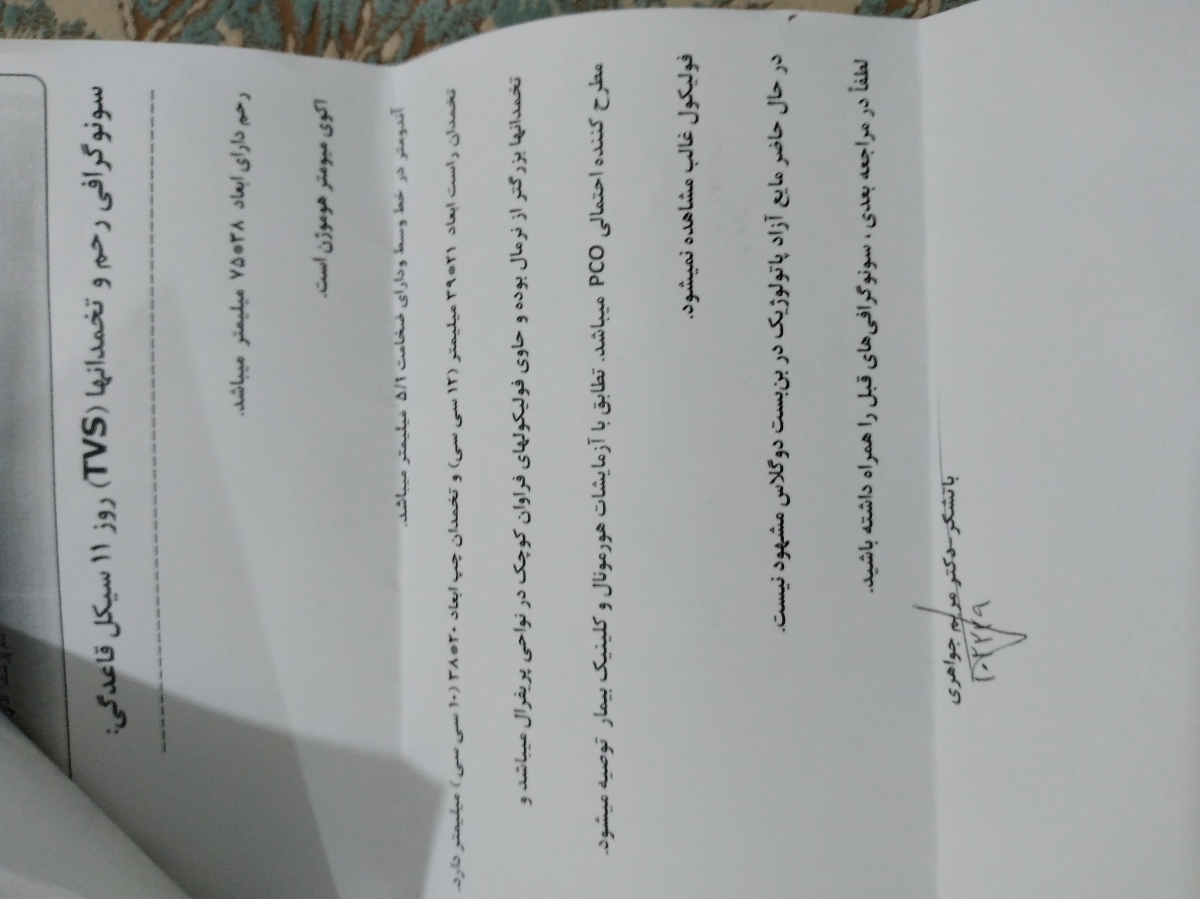 سونوگرافی رحم و تخمدانها (TVS) روز ۱۱ سیکل قاعدگی:
رحم دارای ابعاد ۳۸*۷۵ میلیمتر میباشد.
اکوی میومتر هوموژن است.
آندومتر در خط وسط ودارای ضخامت ۵/۱ میلیمتر میباشد.
تخمدان راست ابعاد ۲۱*۳۹ میلیمتر (۱۲ سی سی) و تخمدان چپ ابعاد ۲۰*۳۸ (۱۰ سی سی) میلیمتر دارد.
تخمدانها بزرگتر از نرمال بوده و حاوی فولیکولهای فراوان کوچک در نواحی پریفرال میباشد و
مطرح کننده احتمالی PCO میباشد. تطابق با آزمایشات هورمونال و کلینیک بیمار توصیه میشود.
فولیکول غالب مشاهده نمیشود.
در حال حاضر مایع آزاد پاتولوژیک در بن‌بست دوگلاس مشهود نیست.
لطفاً در مراجعه بعدی، سونوگرافی‌های قبل را همراه داشته باشید.
باتشکر-دکتر مریم جواهری